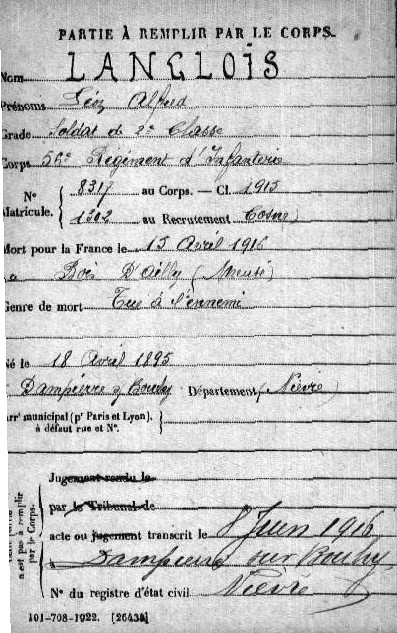 PARTIE À REMPLIR PAR LE CORPS.
Nom LANGLOIS
Prénoms Léon Alfred
Grade Soldat de 2e Classe
Corps 56e Régiment d'Infanterie
N° Matricule. { 8317 au Corps. — Cl. 1915
1302 au Recrutement Cosne
Mort pour la France le 15 Avril 1916
à Bois D'Ailly (Meuse)
Genre de mort Tué à l'ennemi
Né le 18 Avril 1895
Dampierre s/ Bouhy Département (Nièvre)
Arrt municipal (pr Paris et Lyon), à défaut rue et N°. }
Jugement rendu le
par le Tribunal de
acte ou jugement transcrit le 8 Juin 1916
à Dampierre sur Bouhy
Nièvre
N° du registre d'état civil
n'est pas à remplir par le Corps.
101-708-1922. [26434]